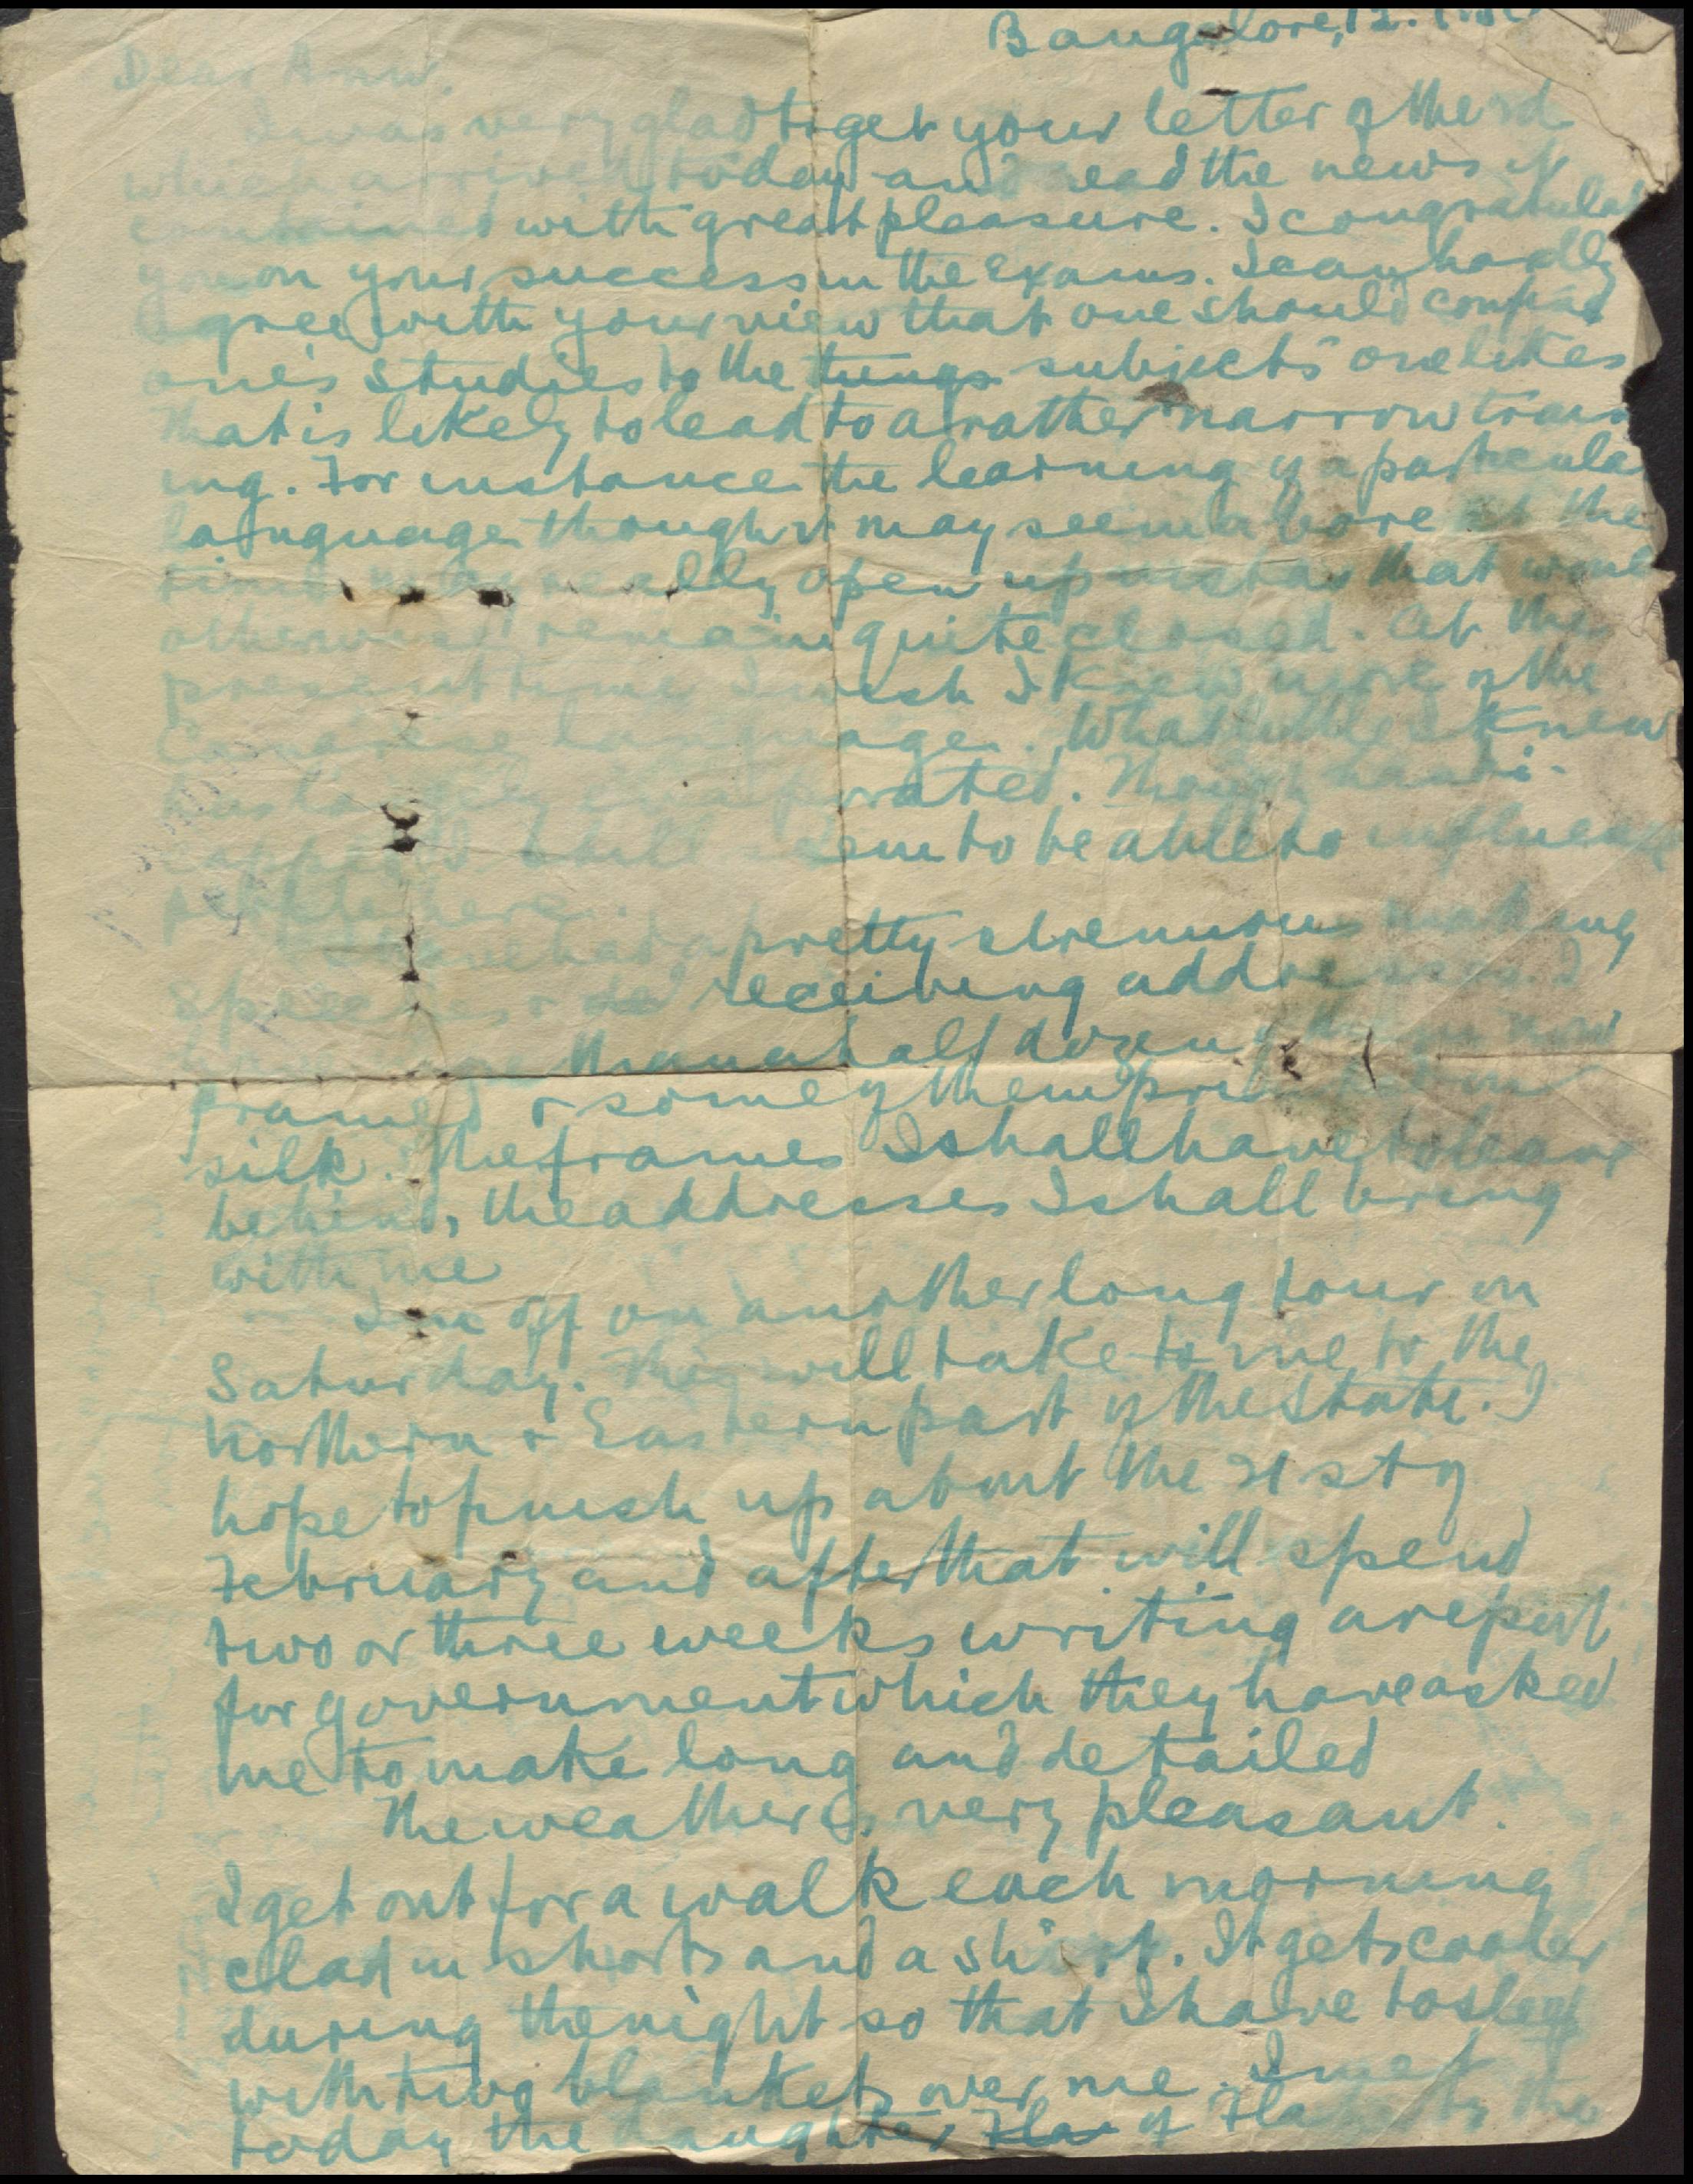 Bangalore, 12.
Dear Anne,
I was very glad to get your letter of the 3rd
which arrived today and read the news it
contained with great pleasure. I congratulate
you on your success in the Exams. I can hardly
agree with your view that one should confine
one's studies to the things subjects one likes
That is likely to lead to a rather narrow train
ing. For instance the learning of a particular
language though it may seem a bore at the
time may really open up vistas that would
otherwise remain quite closed. At the
present time I wish I knew more of the
Canarese language. What little I knew
has largely evaporated. Though handi-
capped I still seem to be able to influence
people here.
I have had a pretty strenuous making
speeches & receiving addresses. I
have more than a half dozen of them now
framed & some of them printed on
silk. The frames I shall have to leave
behind, the addresses I shall bring
with me
I am off on another long tour on
Saturday. This will take to me to the
Northern & Eastern part of the State. I
hope to finish up about the 21st of
February and after that will spend
two or three weeks writing a report
for government which they have asked
me to make long and detailed
The weather is very pleasant.
I get out for a walk each morning
clad in shorts and a shirt. It gets cooler
during the night so that I have to sleep
with two blankets over me. I met
today the daughter of the